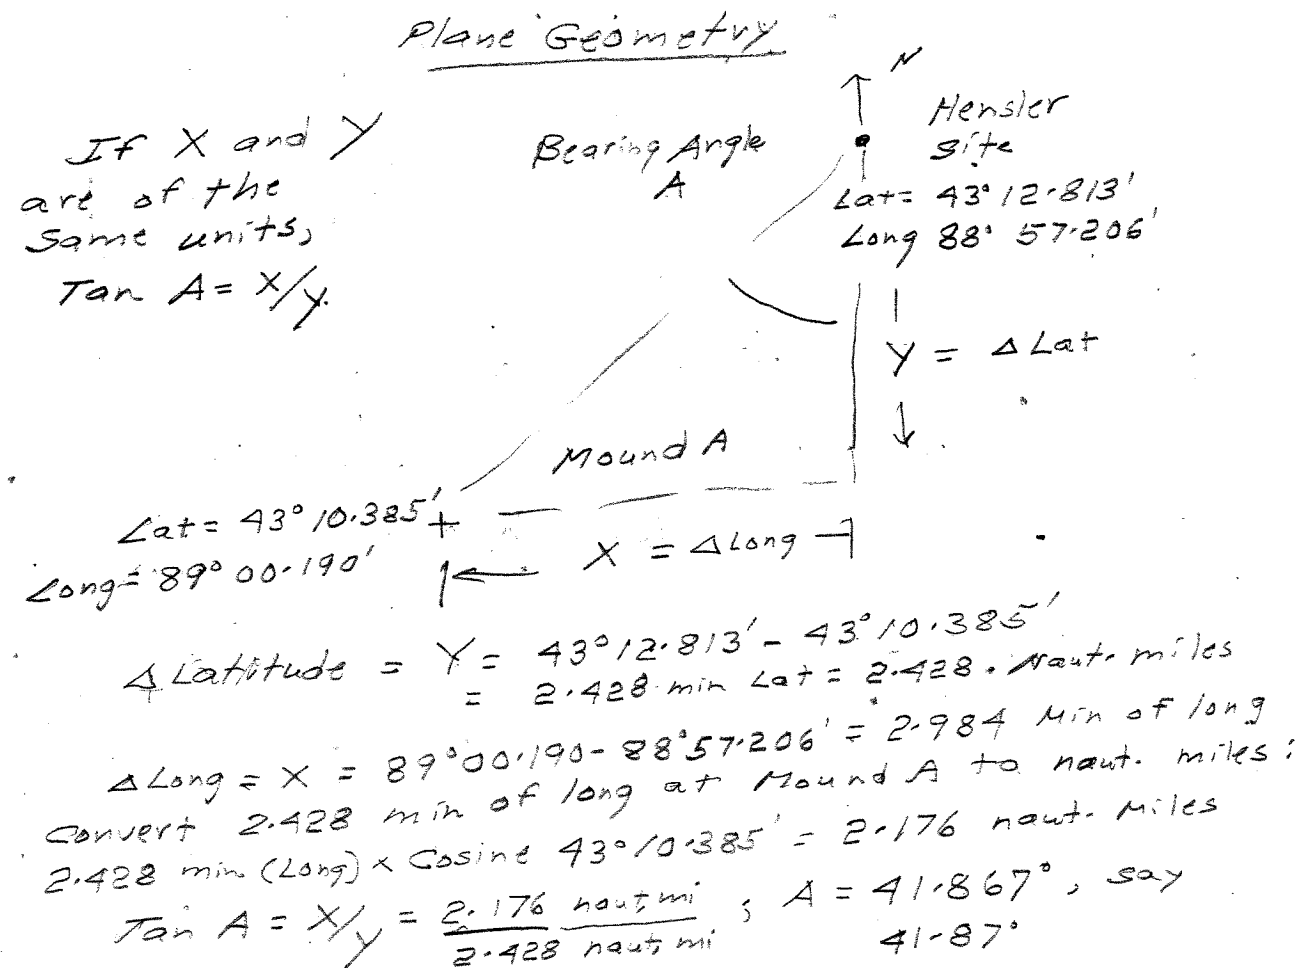 Plane Geometry
N
If X and Y
are of the
same units,
Tan A = X/y.
Bearing Angle
A
Hensler
site
Lat = 43° 12.813'
Long 88° 57.206'
Y = Δ Lat
Mound A
Lat = 43° 10.385'
Long = 89° 00.190'
X = Δ Long
Δ Latitude = Y = 43° 12.813' - 43° 10.385'
= 2.428 min Lat = 2.428. Naut. miles
Δ Long = X = 89° 00.190 - 88° 57.206' = 2.984 Min of long
Convert 2.428 min of long at Mound A to naut. miles:
2.428 min (Long) x Cosine 43° 10.385' = 2.176 naut. Miles
Tan A = X/y = 2.176 naut, mi / 2.428 naut, mi ; A = 41.867°, say
41.87°